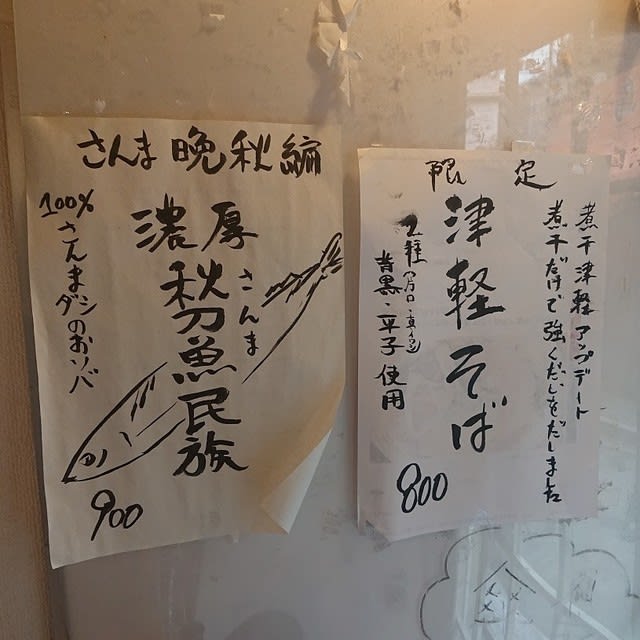 さんま 晩秋編
濃厚
さんま
秋刀魚民族
100%
さんまダシのおソバ
900
限定
煮干津軽 アップデート
煮干だけで強くだしをだしました
津軽そば
2種
背黒・平子 使用
800